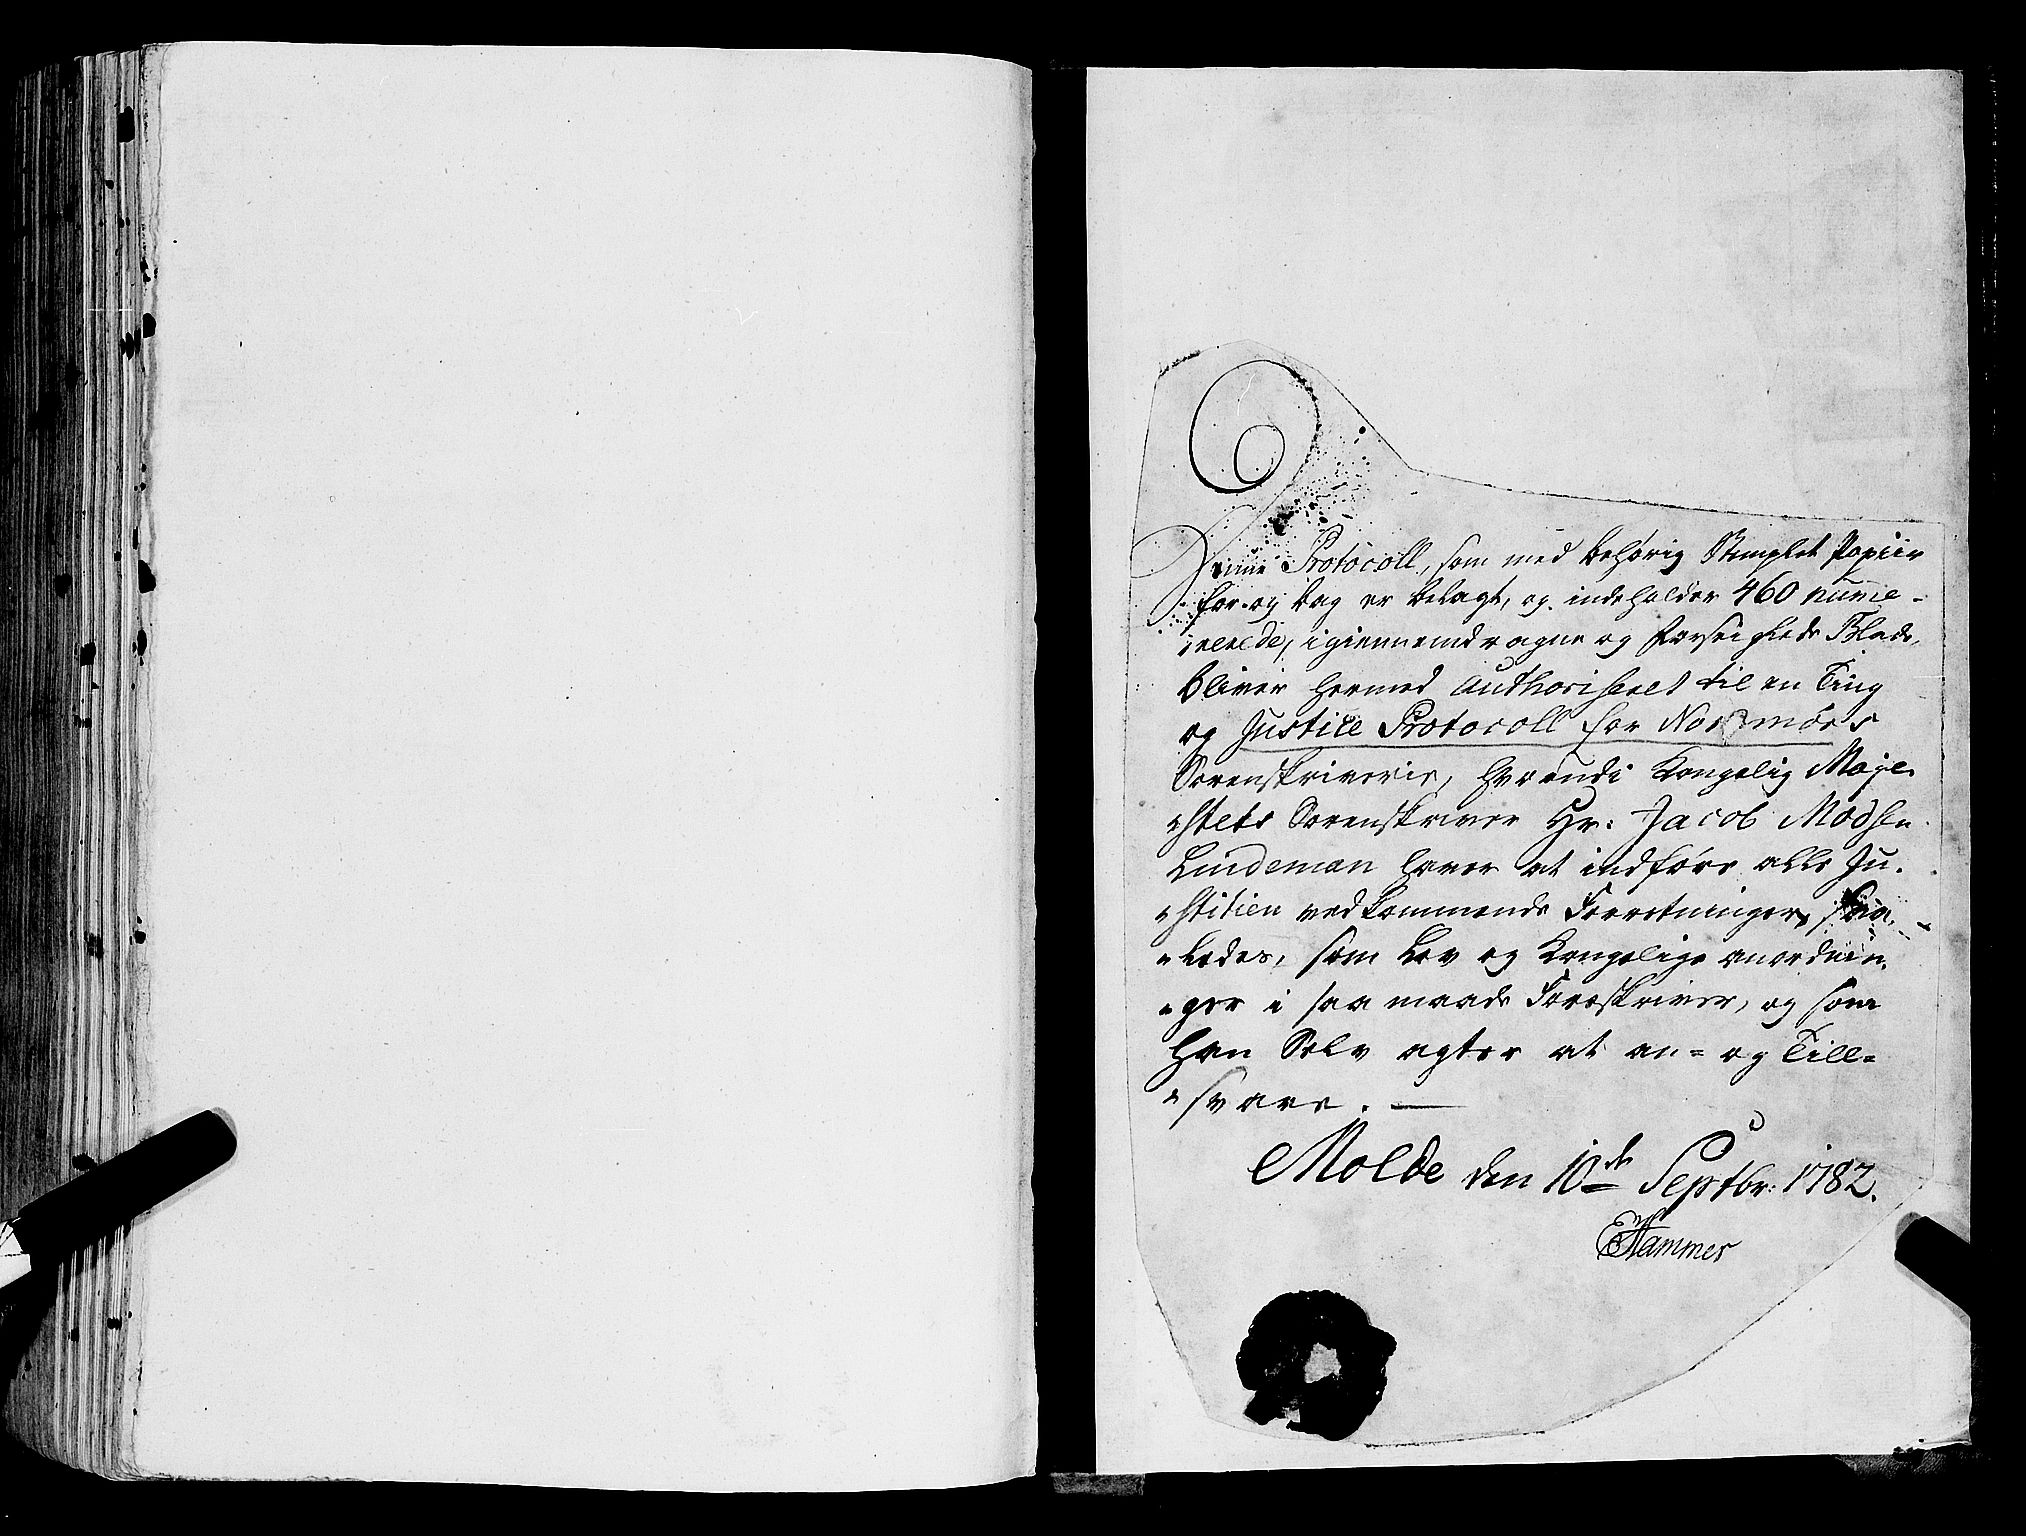 Denne Protocoll, som med behørig Stemplet Papiir
for og bag er belagt, og indeholder 460 nume-
rerede, igiennemdragne og forseiglede Blade,
bliver hermed Authoriseret til en Ting
og Justice Protocoll for Nordmörs
Sorenskriverie, hvorudi Kongelig Maje-
stets Sorenskriver Hr: Jacob Madsen
Lindeman haver at indføre alle Ju-
stitien vedkommende Forretninger, saa-
ledes, som Lov og Kongelige anordnin-
ger i saa maade Foreskriver, og som
han Selv agter at an- og Till-
svare.
Molde den 10de Septbr: 1782.
Hammer